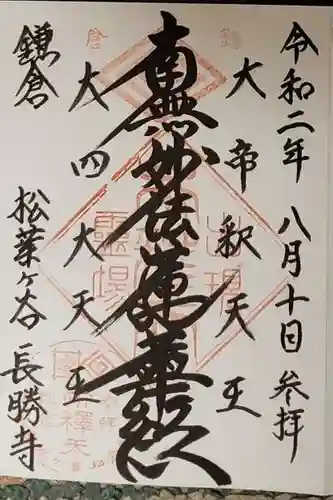 令和二年 八月十日 参拝
大帝釈天王
南無妙法蓮華経
大四大天王
鎌倉 松葉ヶ谷 長勝寺
鎌
倉
出現
霊場